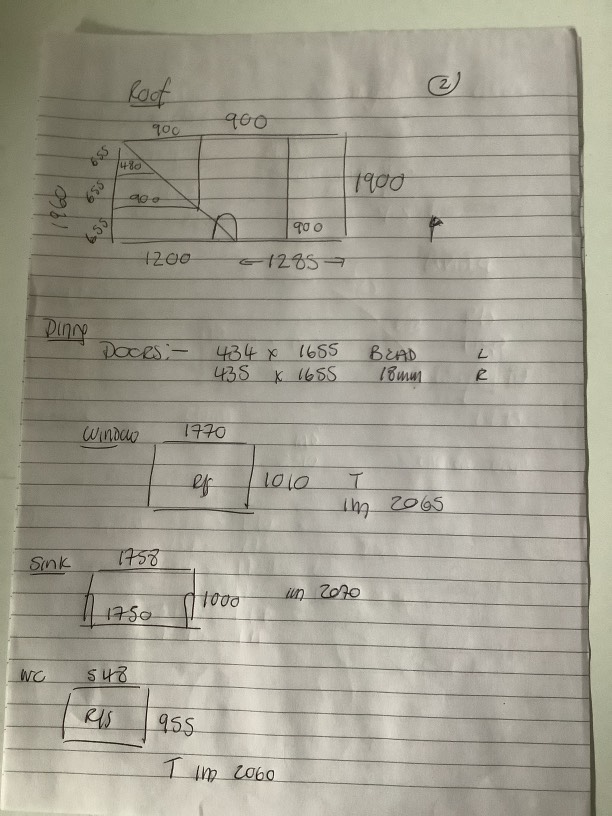 Roof
2
900 900
655
480
655
900
1960
655
1900
900
1200 1285
Dinng
DOORS:- 434 x 1655 BEAD L
435 x 1655 18mm R
Window 1770
R/S 1010 T
im 2065
Sink 1758
1750 1000 im 2070
WC 548
R/S 955
T im 2060